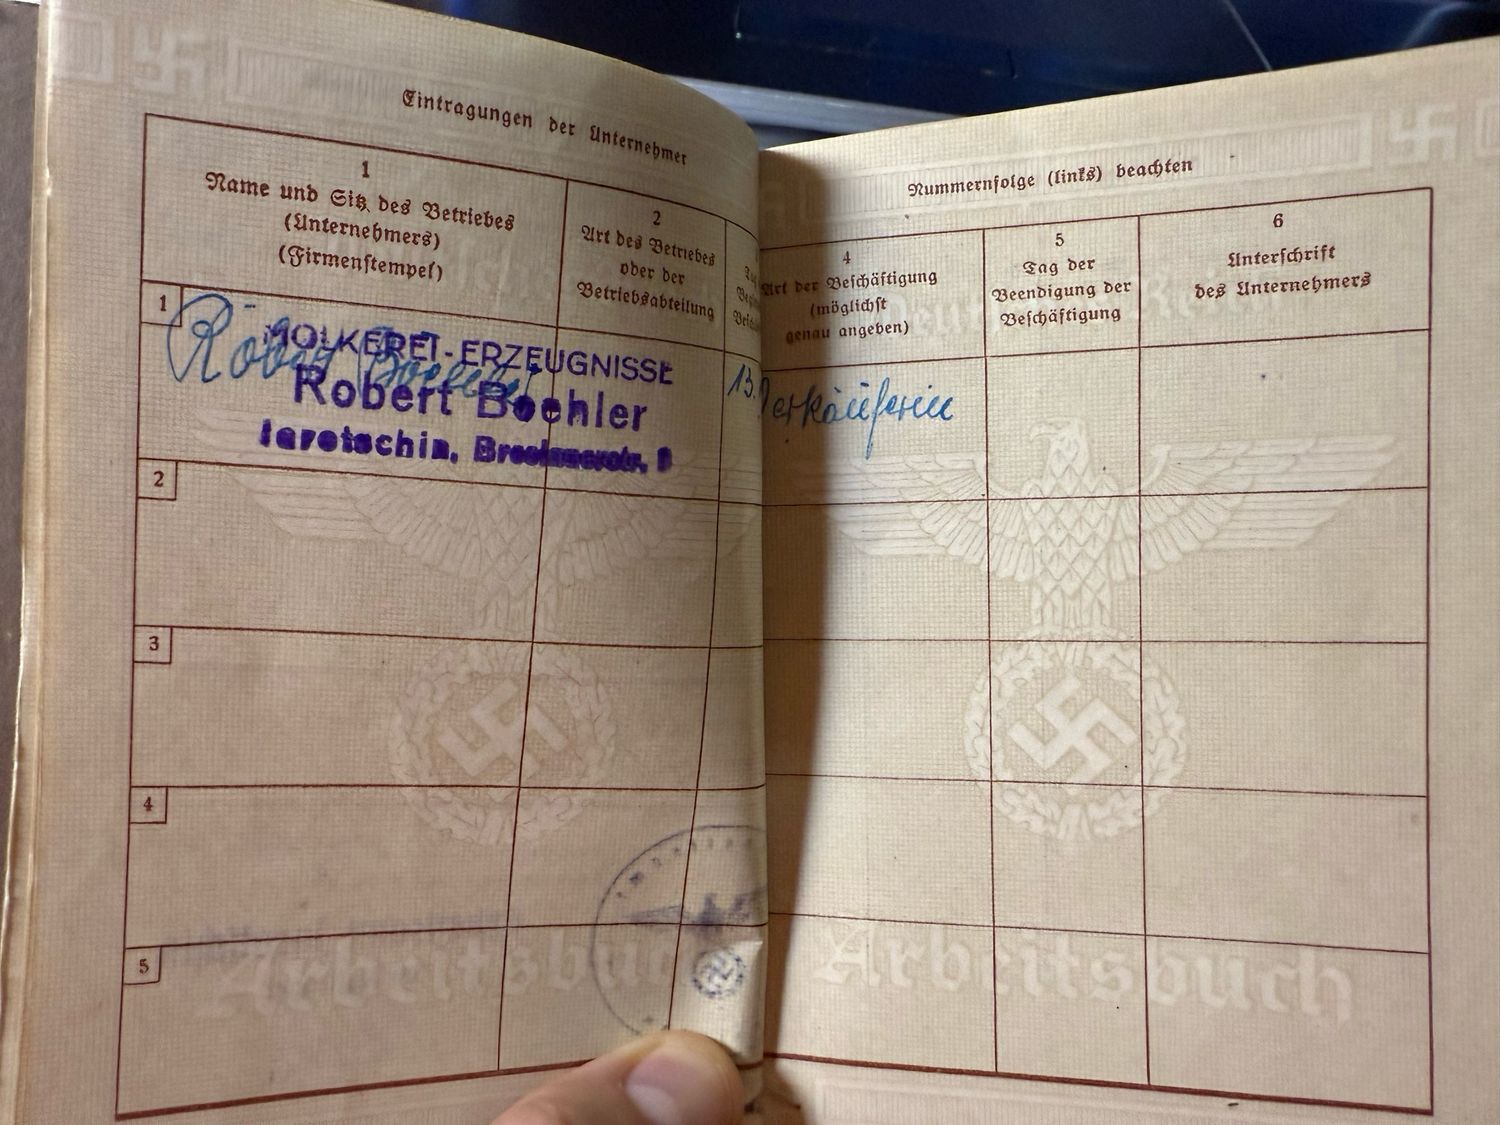 Eintragungen der Unternehmer
1
Name und Sitz des Betriebes
(Unternehmers)
(Firmenstempel)
2
Art des Betriebes
oder der
Betriebsabteilung
1
MOLKEREI-ERZEUGNISSE
Robert Boehler
Jarotschin, Breslauerstr.
13.
2
3
4
5
Arbeitsbuch
Nummernfolge (links) beachten
4
Art der Beschäftigung
(möglichst
genau angeben)
5
Tag der
Beendigung der
Beschäftigung
6
Unterschrift
des Unternehmers
Verkäuferin
Arbeitsbuch